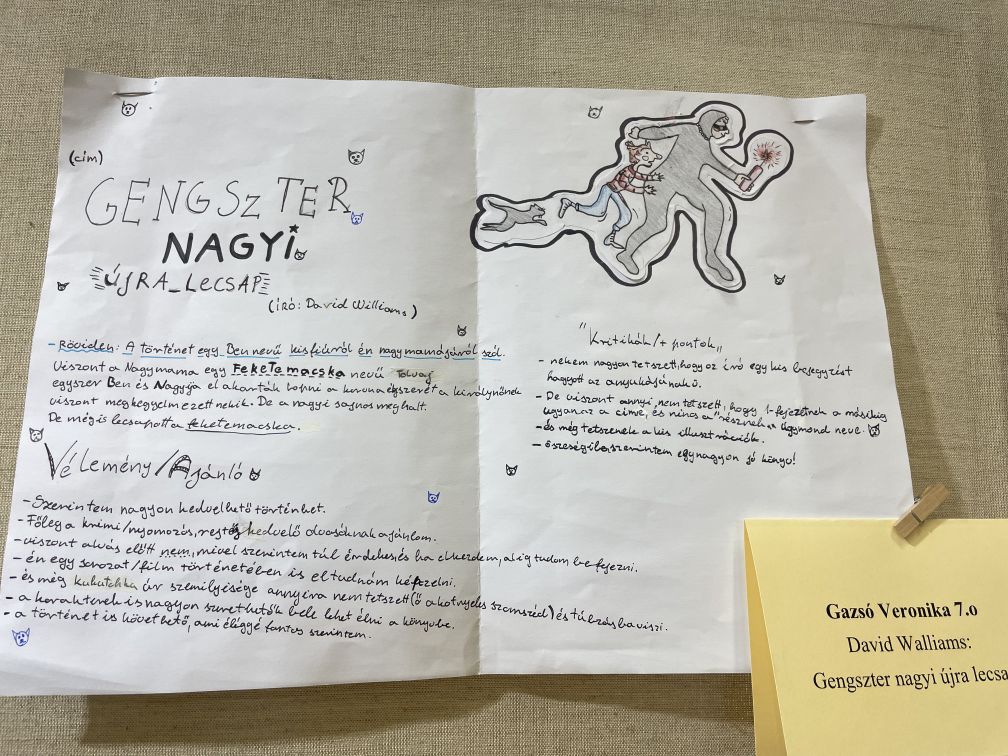 (cím)
GENGSZTER
NAGYi
ÚJRA_LECSAP
(író: David Williams)
- Röviden: A történet egy Ben nevű kisfiúról én nagymamájáról szól.
Viszont a Nagymama egy Feketemacska nevű tolvaj
egyszer Ben és Nagyija el akarták lopni a koronaékszerét a királynőnek
viszont megkegyelmezett nekik. De a nagyi sajnos meghalt.
De mégis lecsapott a feketemacska.
Vélemény/Ajánló
- Szerintem nagyon kedvelhető történhet.
- Főleg a krimi/nyomozós, kedvelő olvasóknak ajánlom.
- viszont alvás előtt nem, mivel szerintem túl érdekes, és ha elkezdem, alig tudom befejezni.
- én egy sorozat/film történetében is el tudnám képzelni.
- és még úr személyisége annyira nem tetszett (ő a kotnyeles szomszéd) és túlzásba viszi.
- a karakterek is nagyon szerethetők bele lehet élni a könyvbe.
- a történet is követhető, ami éléggé fontos szerintem.
"Kritikák/+ pontok"
- nekem nagyon tetszett, hogy az író egy kis bejegyzést
hagyott az anyukájának.
- De viszont annyi nem tetszett, hogy 1-fejezetnek a másikig
ugyanaz a címe, és nincs a "résznek" úgymond neve.
- és még tetszenek a kis illusztrációk.
- összeségibe szerintem egy nagyon jó könyv!
Gazsó Veronika 7.o
David Walliams:
Gengszter nagyi újra lecsa